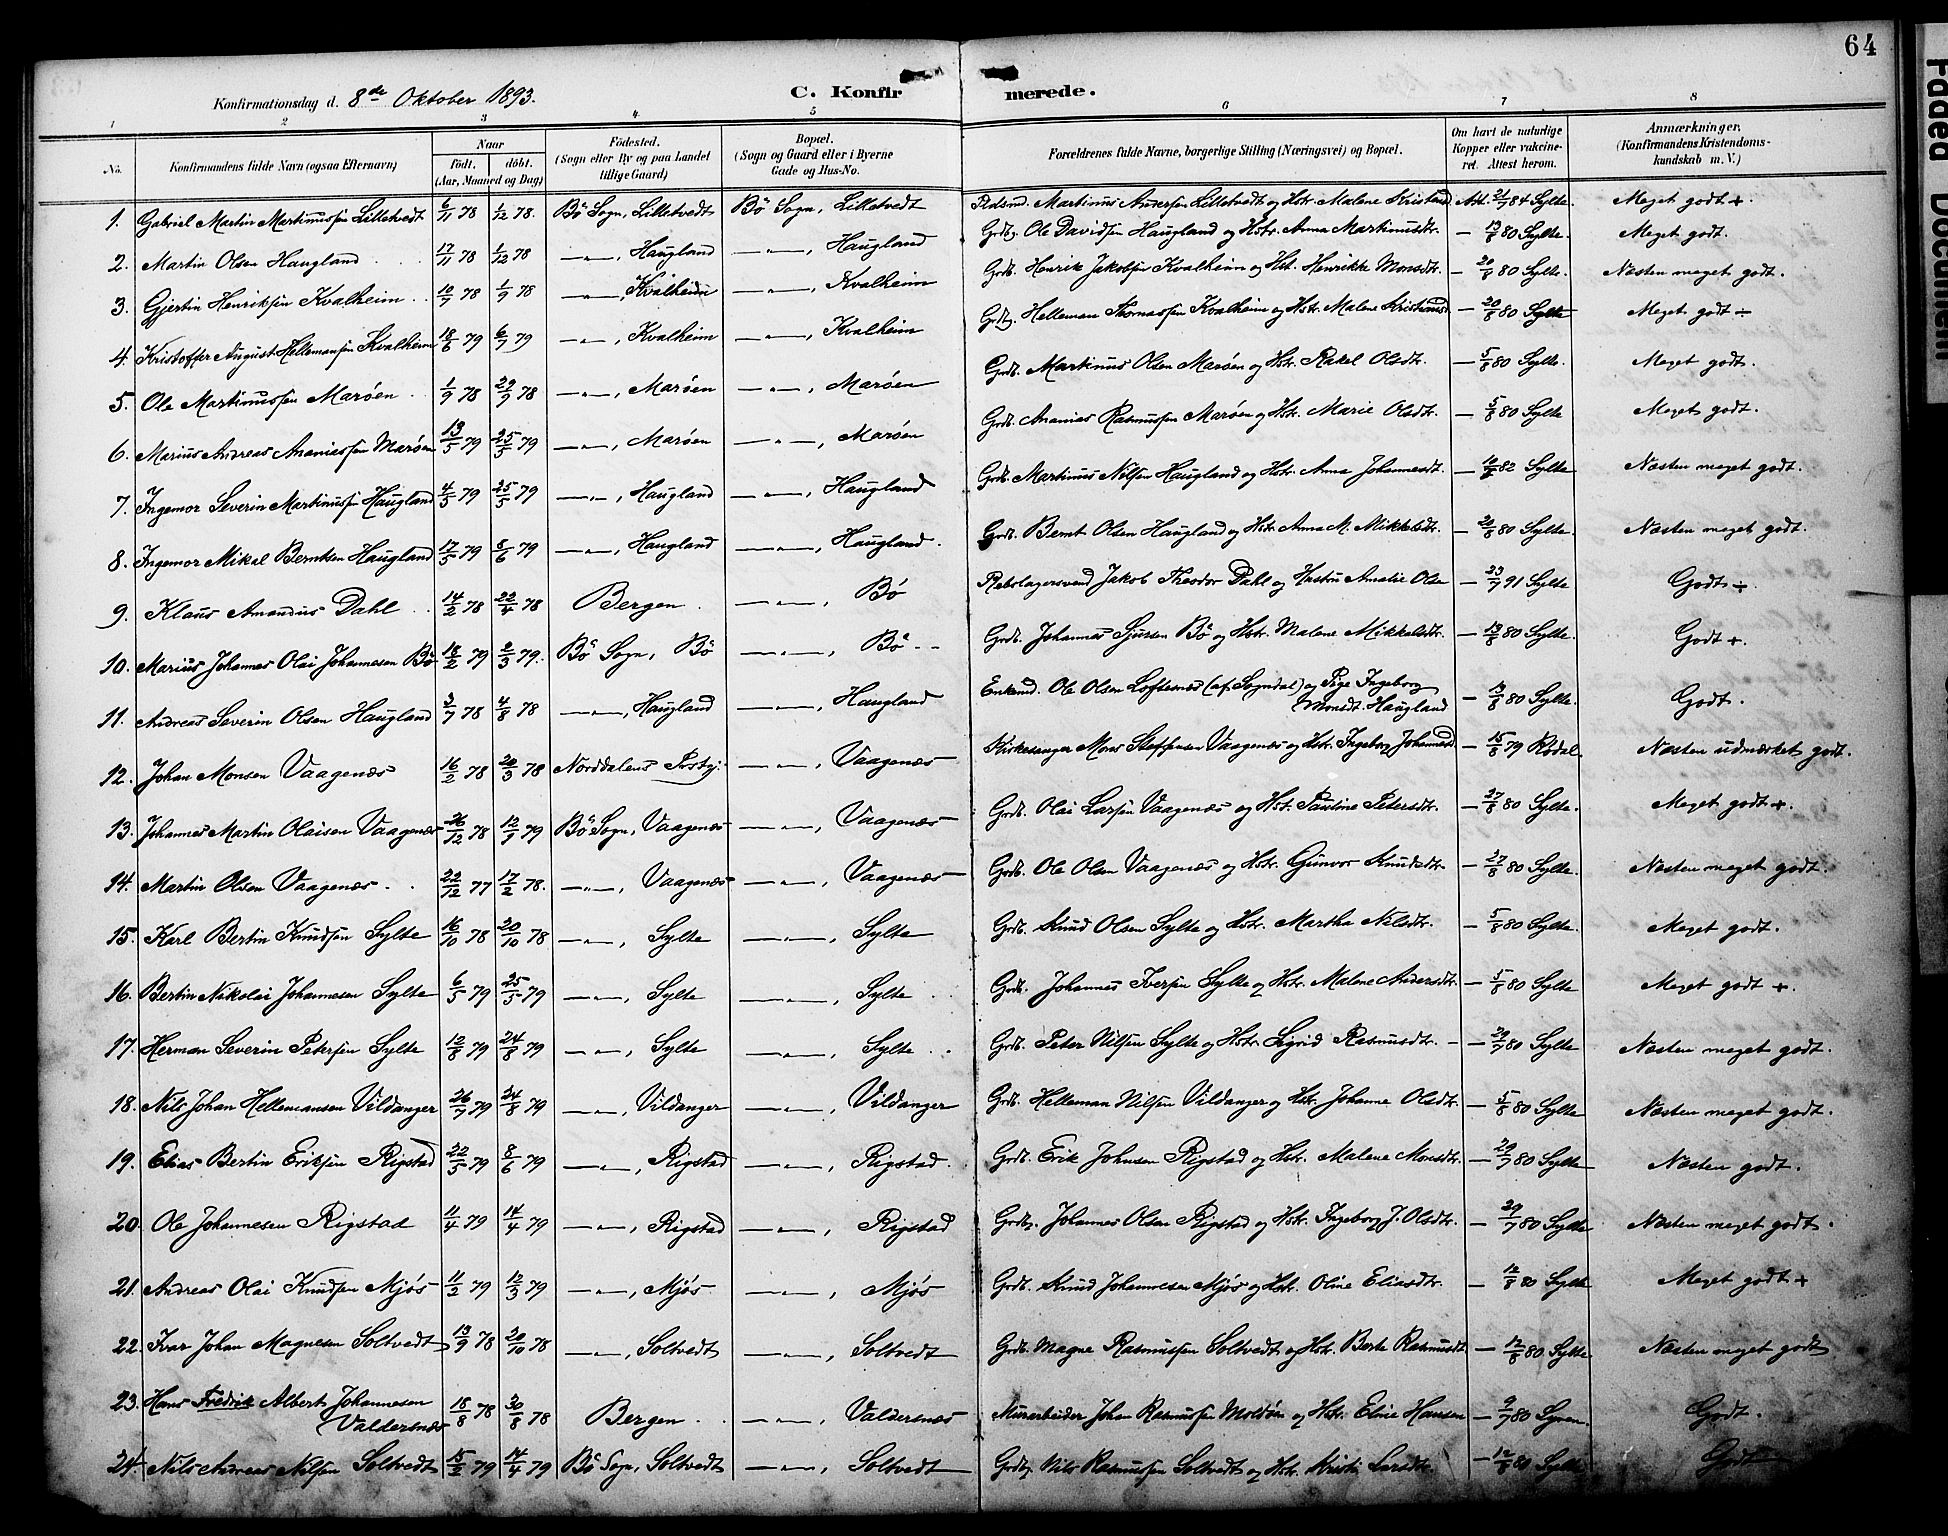 64
Konfirmationsdag d. 8de Oktober 1893.
C. Konfir merede.
1 2 3 4 5 6 7 8
No. Konfirmandens fulde Navn (ogsaa Efternavn) Naar født. døbt. (Aar, Maaned og Dag) Fødested. (Sogn eller By og paa Landet tillige Gaard) Bopæl. (Sogn og Gaard eller i Byerne Gade og Hus-No. Forældrenes fulde Navne, borgerlige Stilling (Næringsvei) og Bopæl. Om havt de naturlige Kopper eller vakcineret. Attest herom. Anmærkninger. (Konfirmandens Kristendomskundskab m. V.)
1. Gabriel Martin Martinussen Lilletvedt 6/11 78 1/12 78. Bö Sogn, Lilletvedt Bö Sogn, Lilletvedt Martinus Andersen Lilletvedt og Hstr. Malene Kristensd. Att. 84 Sylte. Meget godt +.
2. Martin Olsen Haugland 17/11 78 1/12 78 —"—, Haugland —"—, Haugland Grdbg. Ole Davidsen Haugland og Hstr. Anna Martinusdtr. — 13/8 80 Sylte. Meget godt.
3. Gjertin Henriksen Kvalheim 10/9 78 1/9 78 —"—, Kvalheim —"—, Kvalheim Grdb. Henrik Jakobsen Kvalheim og Hst. Henrikke Monsdtr. — 20/8 80 Sylte. Næsten meget godt.
4. Kristoffer August Hellemansen Kvalheim 18/6 79 6/7 79 —"—, Kvalheim —"—, Kvalheim Grdbg. Helleman Thomassen Kvalheim og Hstr. Malene Kristensd. — 20/8 80 Sylte Meget godt ÷
5. Ole Martinussen Marøen 1/9 78 29/9 78 —"—, Marøen —"—, Marøen Grdb. Martinus Olsen Marøen og Hstr. Rakel Olsdtr. — 5/8 80 Sylte. Meget godt.
6. Marius Andreas Ananiassen Marøen 13/5 79 25/5 79 —"—, Marøen —"—, Marøen Grdb. Ananias Rasmussen Marøen og Hstr. Marie Olsdtr. — 5/8 80 Sylte Meget godt.
7. Ingemor Severin Martinussen Haugland 4/5 79 25/5 79 —"—, Haugland —"—, Haugland Grdb. Martinus Nilsen Haugland og Hstr. Anna Johannesdt. — 82 Sylte Næsten meget godt.
8. Ingemor Mikal Berntsen Haugland 17/5 79 8/6 79 —"—, Haugland —"—, Haugland. Grdb. Bernt Olsen Haugland og Hstr Anna M. Mikkelsdtr. — 20/8 80 Sylte. Næsten meget godt.
9. Klaus Amandus Dahl 14/2 78 22/4 78 Bergen. —"—, Bö Rebslagersvend Jakob Theodor Dahl og Hustru Amalie Olse — 23/7 91 Sylte Godt ÷.
10. Marius Johannes Olai Johannesen Bö 18/2 79 2/3 79. Bö Sogn, Bö —"—, Bö Grdb. Johannes Sjursen Bö og Hstr. Malene Mikkelsdtr. — 13/8 80 Sylte. Godt +.
11. Andreas Severin Olsen Haugland 3/7 78 4/8 78 —"—, Haugland —"—, Haugland Enkemd. Ole Olsen Loftesnes (af Sogndal) og Pige Ingeborg Monsdt. Haugland — 13/8 80 Sylte. Godt.
12. Johan Monsen Vaagenæs 16/2 78 20/3 78 Norddalens Prstgj. —"—, Vaagenæs Kirkesanger Mons Steffensen Vaagenæs og Hstr. Ingeborg Johannesd. — 15/8 79 Rødal Næsten udmærket godt.
13. Johannes Martin Olaisen Vaagenæs 26/12 78 12/1 79 Bö Sogn, Vaagenæs —"—, Vaagenæs Grdb. Olai Larsen Vaagenæs og Hst. Pauline Petersdtr. — 27/8 80 Sylte. Meget godt +.
14. Martin Olsen Vaagenæs 22/12 77 17/2 78. —"—, Vaagenæs —"—, Vaagenæs Grdb. Ole Olsen Vaagenæs og Hstr. Gunvor Knudsdtr — 27/8 80 Sylte. Næsten meget godt.
15. Karl Bertin Knudsen Sylte 16/10 78 20/10 78 —"—, Sylte —"—, Sylte Grdb. Knud Olsen Sylte og Hstr. Martha Nilsdtr. — 5/8 80 Sylte. Meget godt.
16. Bertin Nikolai Johannesen Sylte 6/5 79 25/5 79 —"—, Sylte —"—, Sylte Grdb. Johannes Iversen Sylte og Hstr. Malene Andersdtr — 5/8 80 Sylte Meget godt +.
17. Herman Severin Petersen Sylte 12/8 79 24/8 79 —"—, Sylte —"—, Sylte Grdb. Peter Nilsen Sylte og Hstr. Sigrid Rasmusdtr. — 29/7 80 Sylte Næsten meget godt.
18. Nils Johan Hellemansen Vildanger 26/7 79 24/8 79 —"—, Vildanger —"—, Vildanger Grdb. Helleman Nilsen Vildanger og Hstr. Johanne Olsdtr. — 5/8 80 Sylte. Næsten meget godt.
19. Elias Bertin Eriksen Rigstad 22/5 79 8/6 79 —"—, Rigstad —"—, Rigstad. Grdb. Erik Johnsen Rigstad og Hstr. Malene Monsdtr. — 29/7 80 Sylte Næsten godt.
20. Ole Johannesen Rigstad 11/4 79 14/4 79 —"—, Rigstad —"—, Rigstad Grdbg. Johannes Olsen Rigstad og Hstr. Ingeborg J. Olsdtr. — 29/7 80 Sylte Næsten meget godt.
21. Andreas Olai Knudsen Mjös 11/2 79 12/3 79 —"—, Mjös —"—, Mjös Grdb. Knud Johannesen Mjös og Hst. Oline Eliasdtr. — 12/8 80 Sylte Meget godt +
22. Ivar Johan Magnesen Soltvedt 13/9 78 20/10 78 —"—, Soltvedt —"—, Soltvedt Grdb. Magne Rasmussen Soltvedt og Hstr. Berte Rasmusdt — 12/8 80 Sylte Næsten meget godt
23. Hans Fredrik Albert Johannesen Valdersnæs 18/8 78 30/8 78 Bergen —"—, Valdersnæs Murarbeider Johan Rasmussen Moldöen og Hstr. Eline Hansen — 80 Godt.
24. Nils Andreas Nilsen Soltvedt 15/2 79 14/4 79 Bö Sogn, Soltvedt —"—, Soltvedt Grdbg. Nils Rasmussen Soltvedt og Hstr. Kristi Larsdtr. — 12/8 80 Sylte Godt
Faded Document